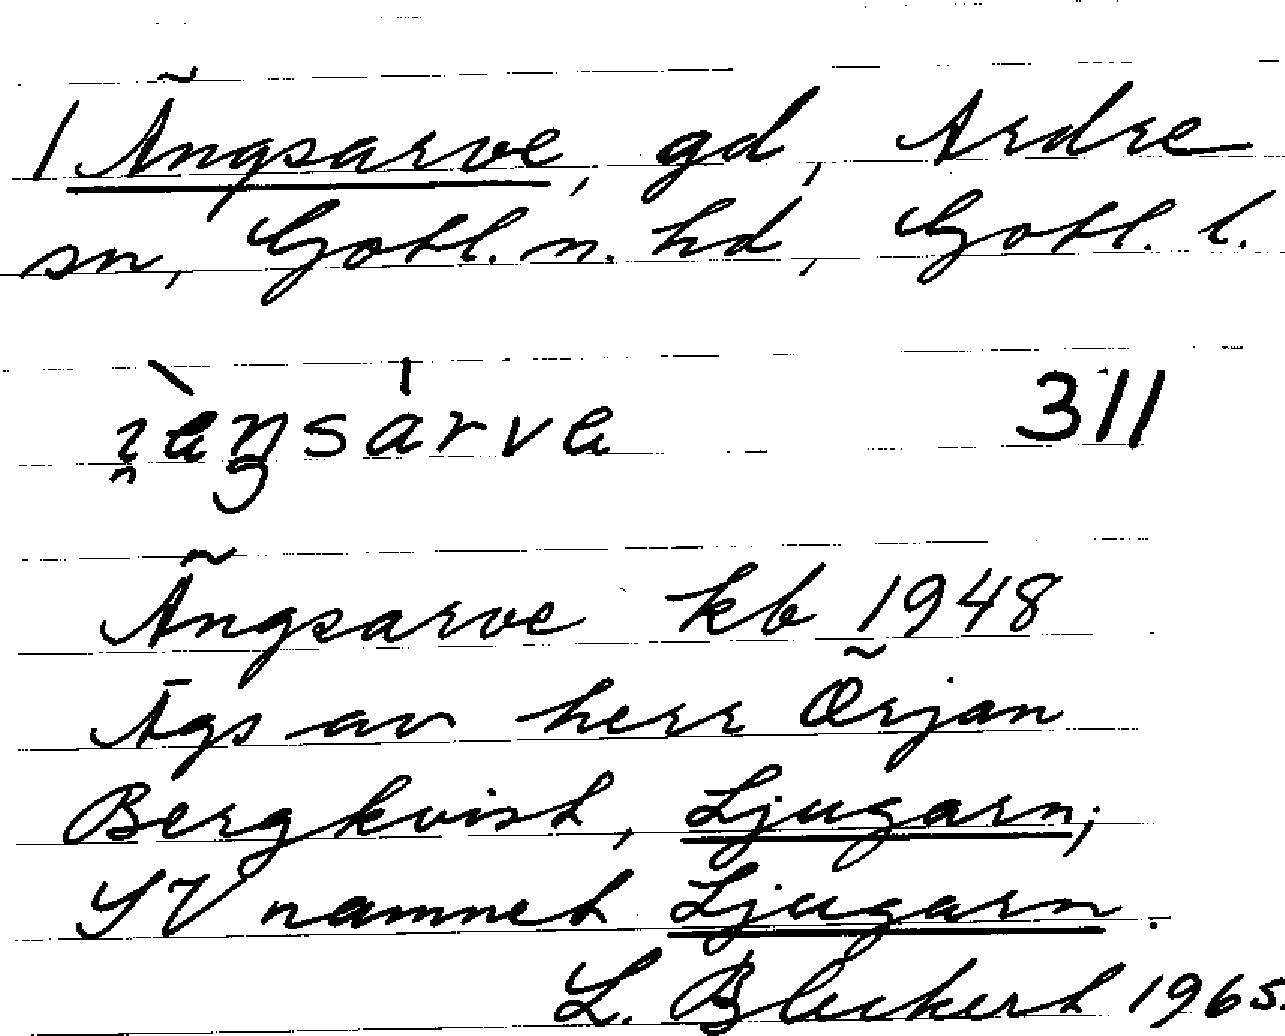 1 Ängsarve, gd, Ardre
sn, Gotl. n. hd, Gotl. l.
311
Ängsarve kb 1948
Ägs av herr Örjan
Bergkvist, Ljugarn;
SV namnet Ljugarn.
L. Bleckert 1965.